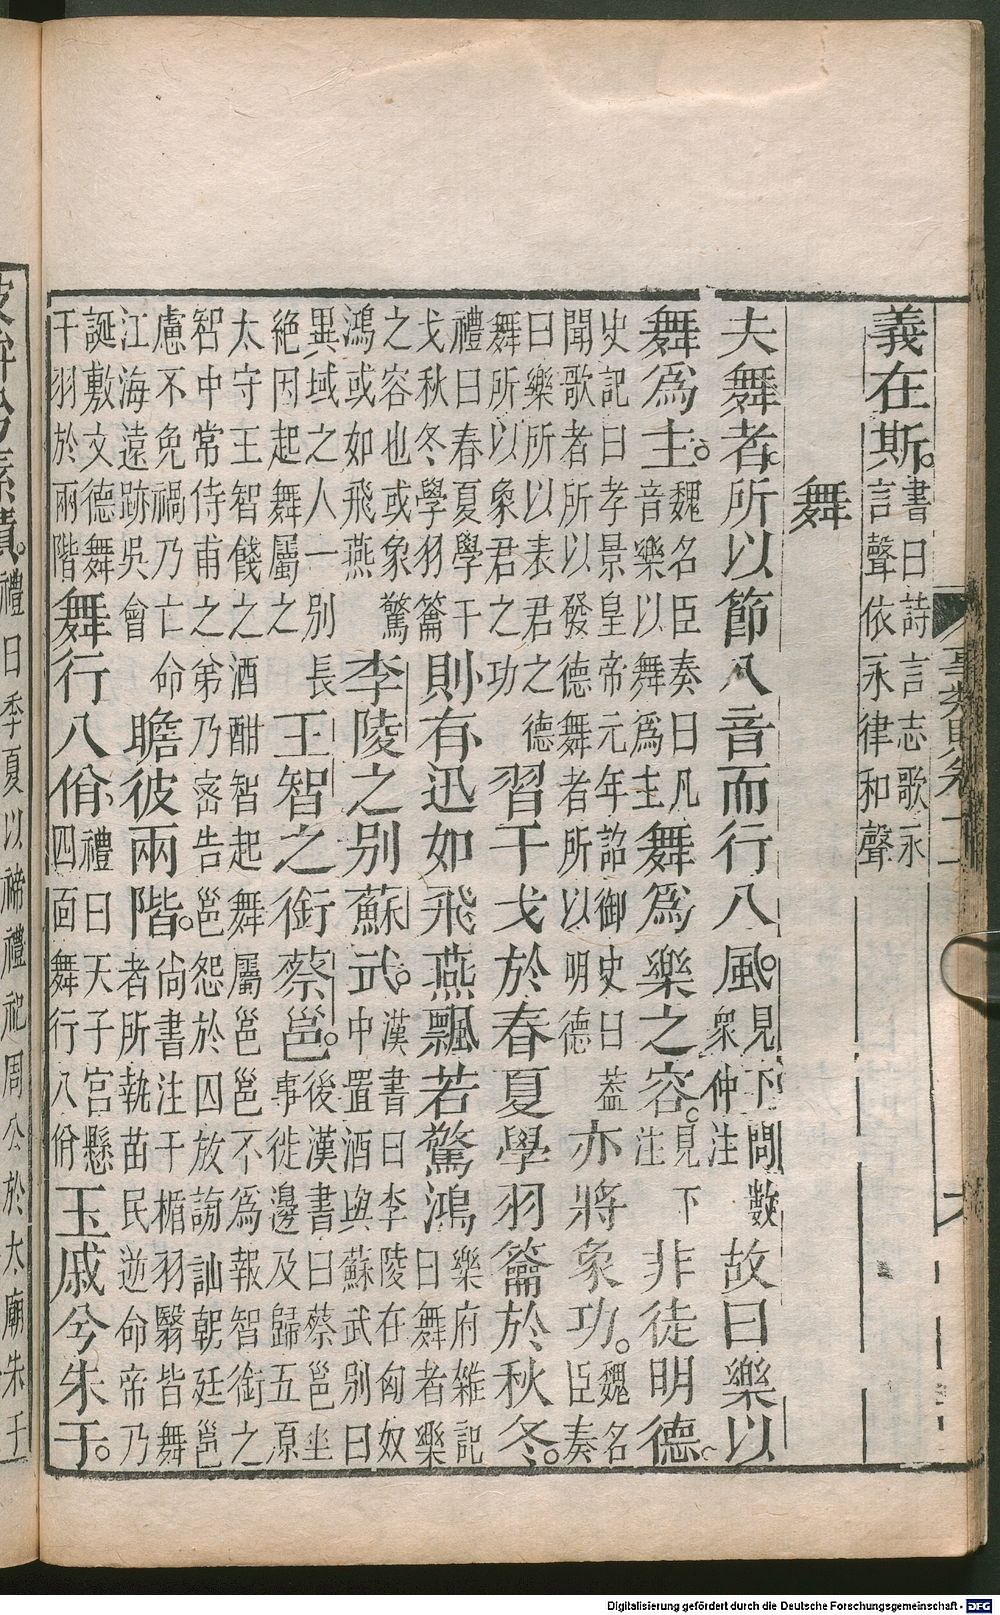 事類賦卷十一 六
義在斯。書曰詩言志歌永
言聲依永律和聲
舞
夫舞者所以節八音而行八風。見下問數
衆仲注
故曰樂以
舞爲主。魏名臣奏曰凡
音樂以舞爲主
舞爲樂之容。見下
注
非徒明德
史記曰孝景皇帝元年詔御史曰蓋
聞歌者所以發德舞者所以明德
亦將象功。魏名
臣奏
曰樂所以表君之德
舞所以象君之功
習干戈於春夏學羽籥於秋冬。
禮曰春夏學干
戈秋冬學羽籥
則有迅如飛燕飄若驚鴻樂府雜記
曰舞者樂
之容也或象驚
鴻或如飛燕
李陵之別蘇武。漢書曰李陵在匈奴
中置酒與蘇武別曰
異域之人一別長
絶因起舞屬之
王智之銜蔡邕。後漢書曰蔡邕坐
事徙邊及歸五原
太守王智餞之酒酣智起舞屬邕邕不爲報智銜之
智中常侍甫之弟乃密告邕怨於囚放謗訕朝廷邕
慮不免禍乃亡命
江海遠跡吳會
瞻彼兩階。尙書注干楯羽翳皆舞
者所執苗民逆命帝乃
誕敷文德舞
干羽於兩階
舞行八佾禮曰天子宮懸
四面舞行八佾
玉戚兮朱干。
素積。禮曰季夏以禘禮祀周公於太廟朱干
Digitalisierung gefördert durch die Deutsche Forschungsgemeinschaft - DFG